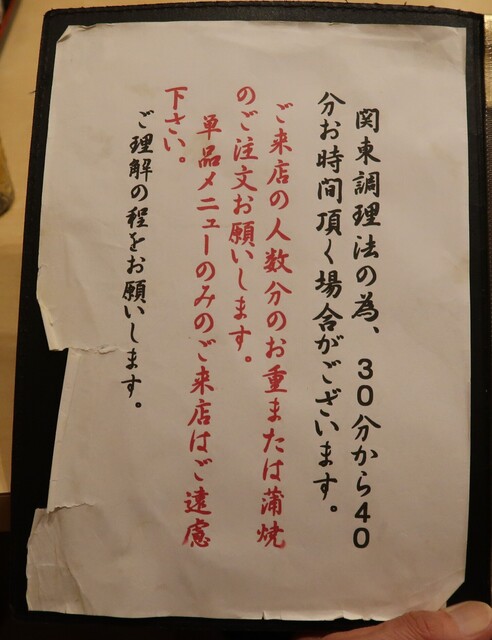 関東調理法の為、３０分から４０
分お時間頂く場合がございます。
ご来店の人数分のお重または蒲焼
のご注文お願いします。
単品メニューのみのご来店はご遠慮
下さい。
ご理解の程をお願いします。